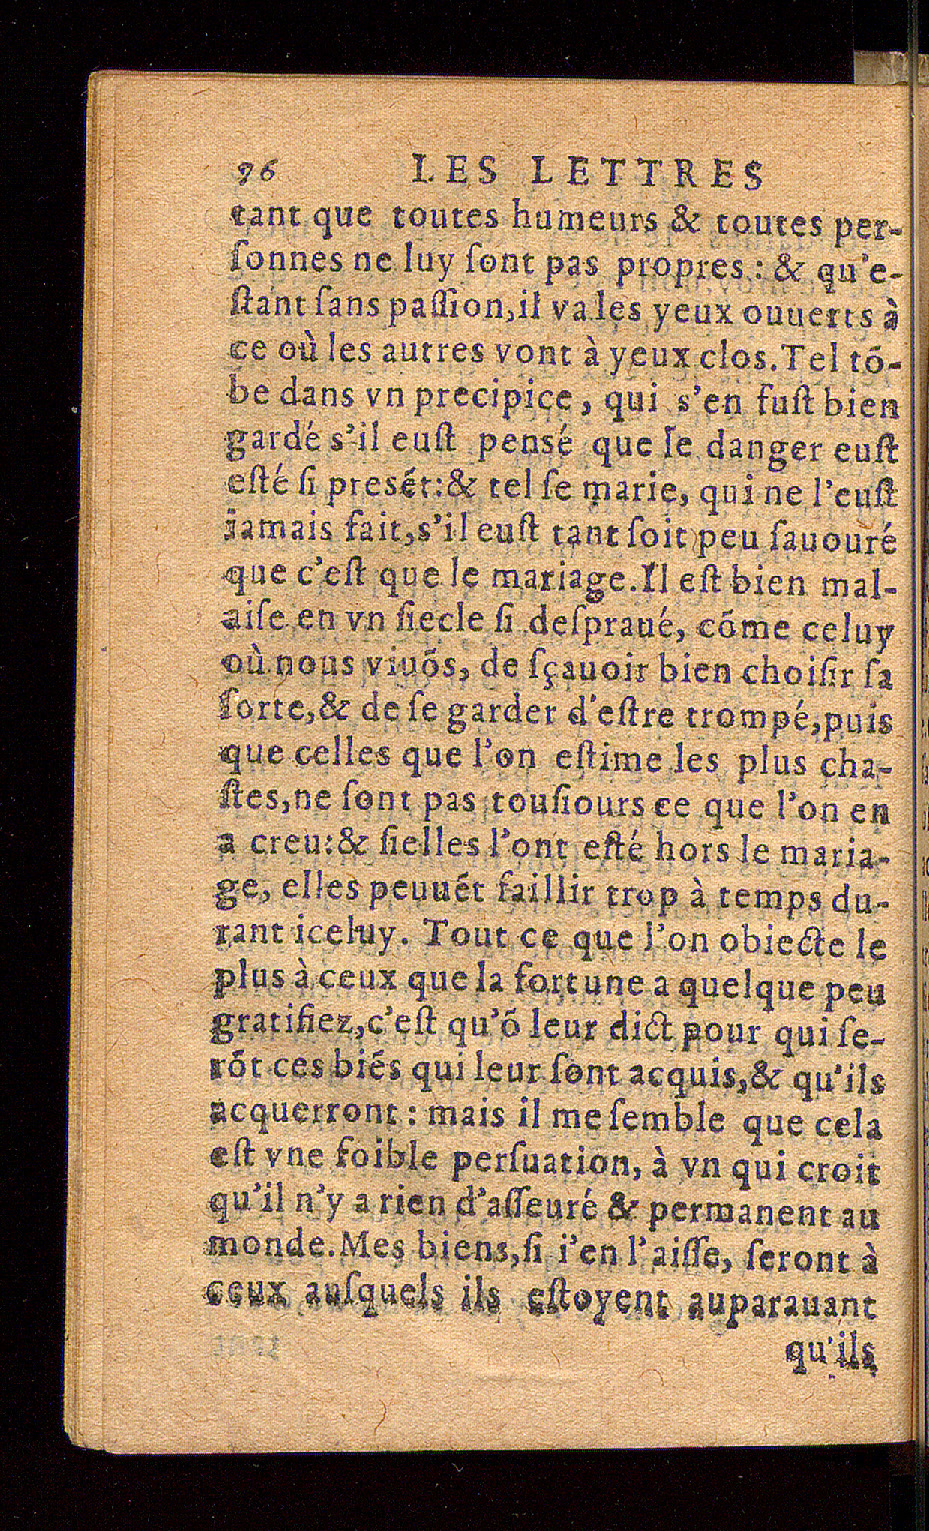 96 LES LETTRES
tant que toutes humeurs & toutes per-
ſonnes ne luy ſont pas propres : & qu'e-
ſtant ſans paſſion, il va les yeux ouuerts à
ce où les autres vont à yeux clos. Tel tõ-
be dans vn precipice, qui s'en fuſt bien
gardé s'il euſt pensé que le danger euſt
eſté ſi presẽt: & tel ſe marie, qui ne l'euſt
iamais fait, s'il euſt tant ſoit peu ſauouré
que c'eſt que le mariage. Il eſt bien mal-
aiſe en vn ſiecle ſi deſpraué, cõme celuy
où nous viuõs, de ſçauoir bien choiſir ſa
ſorte, & de ſe garder d'eſtre trompé, puis
que celles que l'on eſtime les plus cha-
ſtes, ne ſont pas touſiours ce que l'on en
a creu: & ſielles l'ont eſté hors le maria-
ge, elles peuuẽt faillir trop à temps du-
rant iceluy. Tout ce que l'on obiecte le
plus à ceux que la fortune a quelque peu
gratifiez, c'eſt qu'õ leur dict pour qui ſe-
rõt ces biẽs qui leur ſont acquis, & qu'ils
acquerront : mais il me ſemble que cela
eſt vne foible perſuation, à vn qui croit
qu'il n'y a rien d'aſſeuré & permanent au
monde. Mes biens, ſi i'en l'aiſſe, ſeront à
ceux auſquels ils eſtoyent auparauant
qu'ils